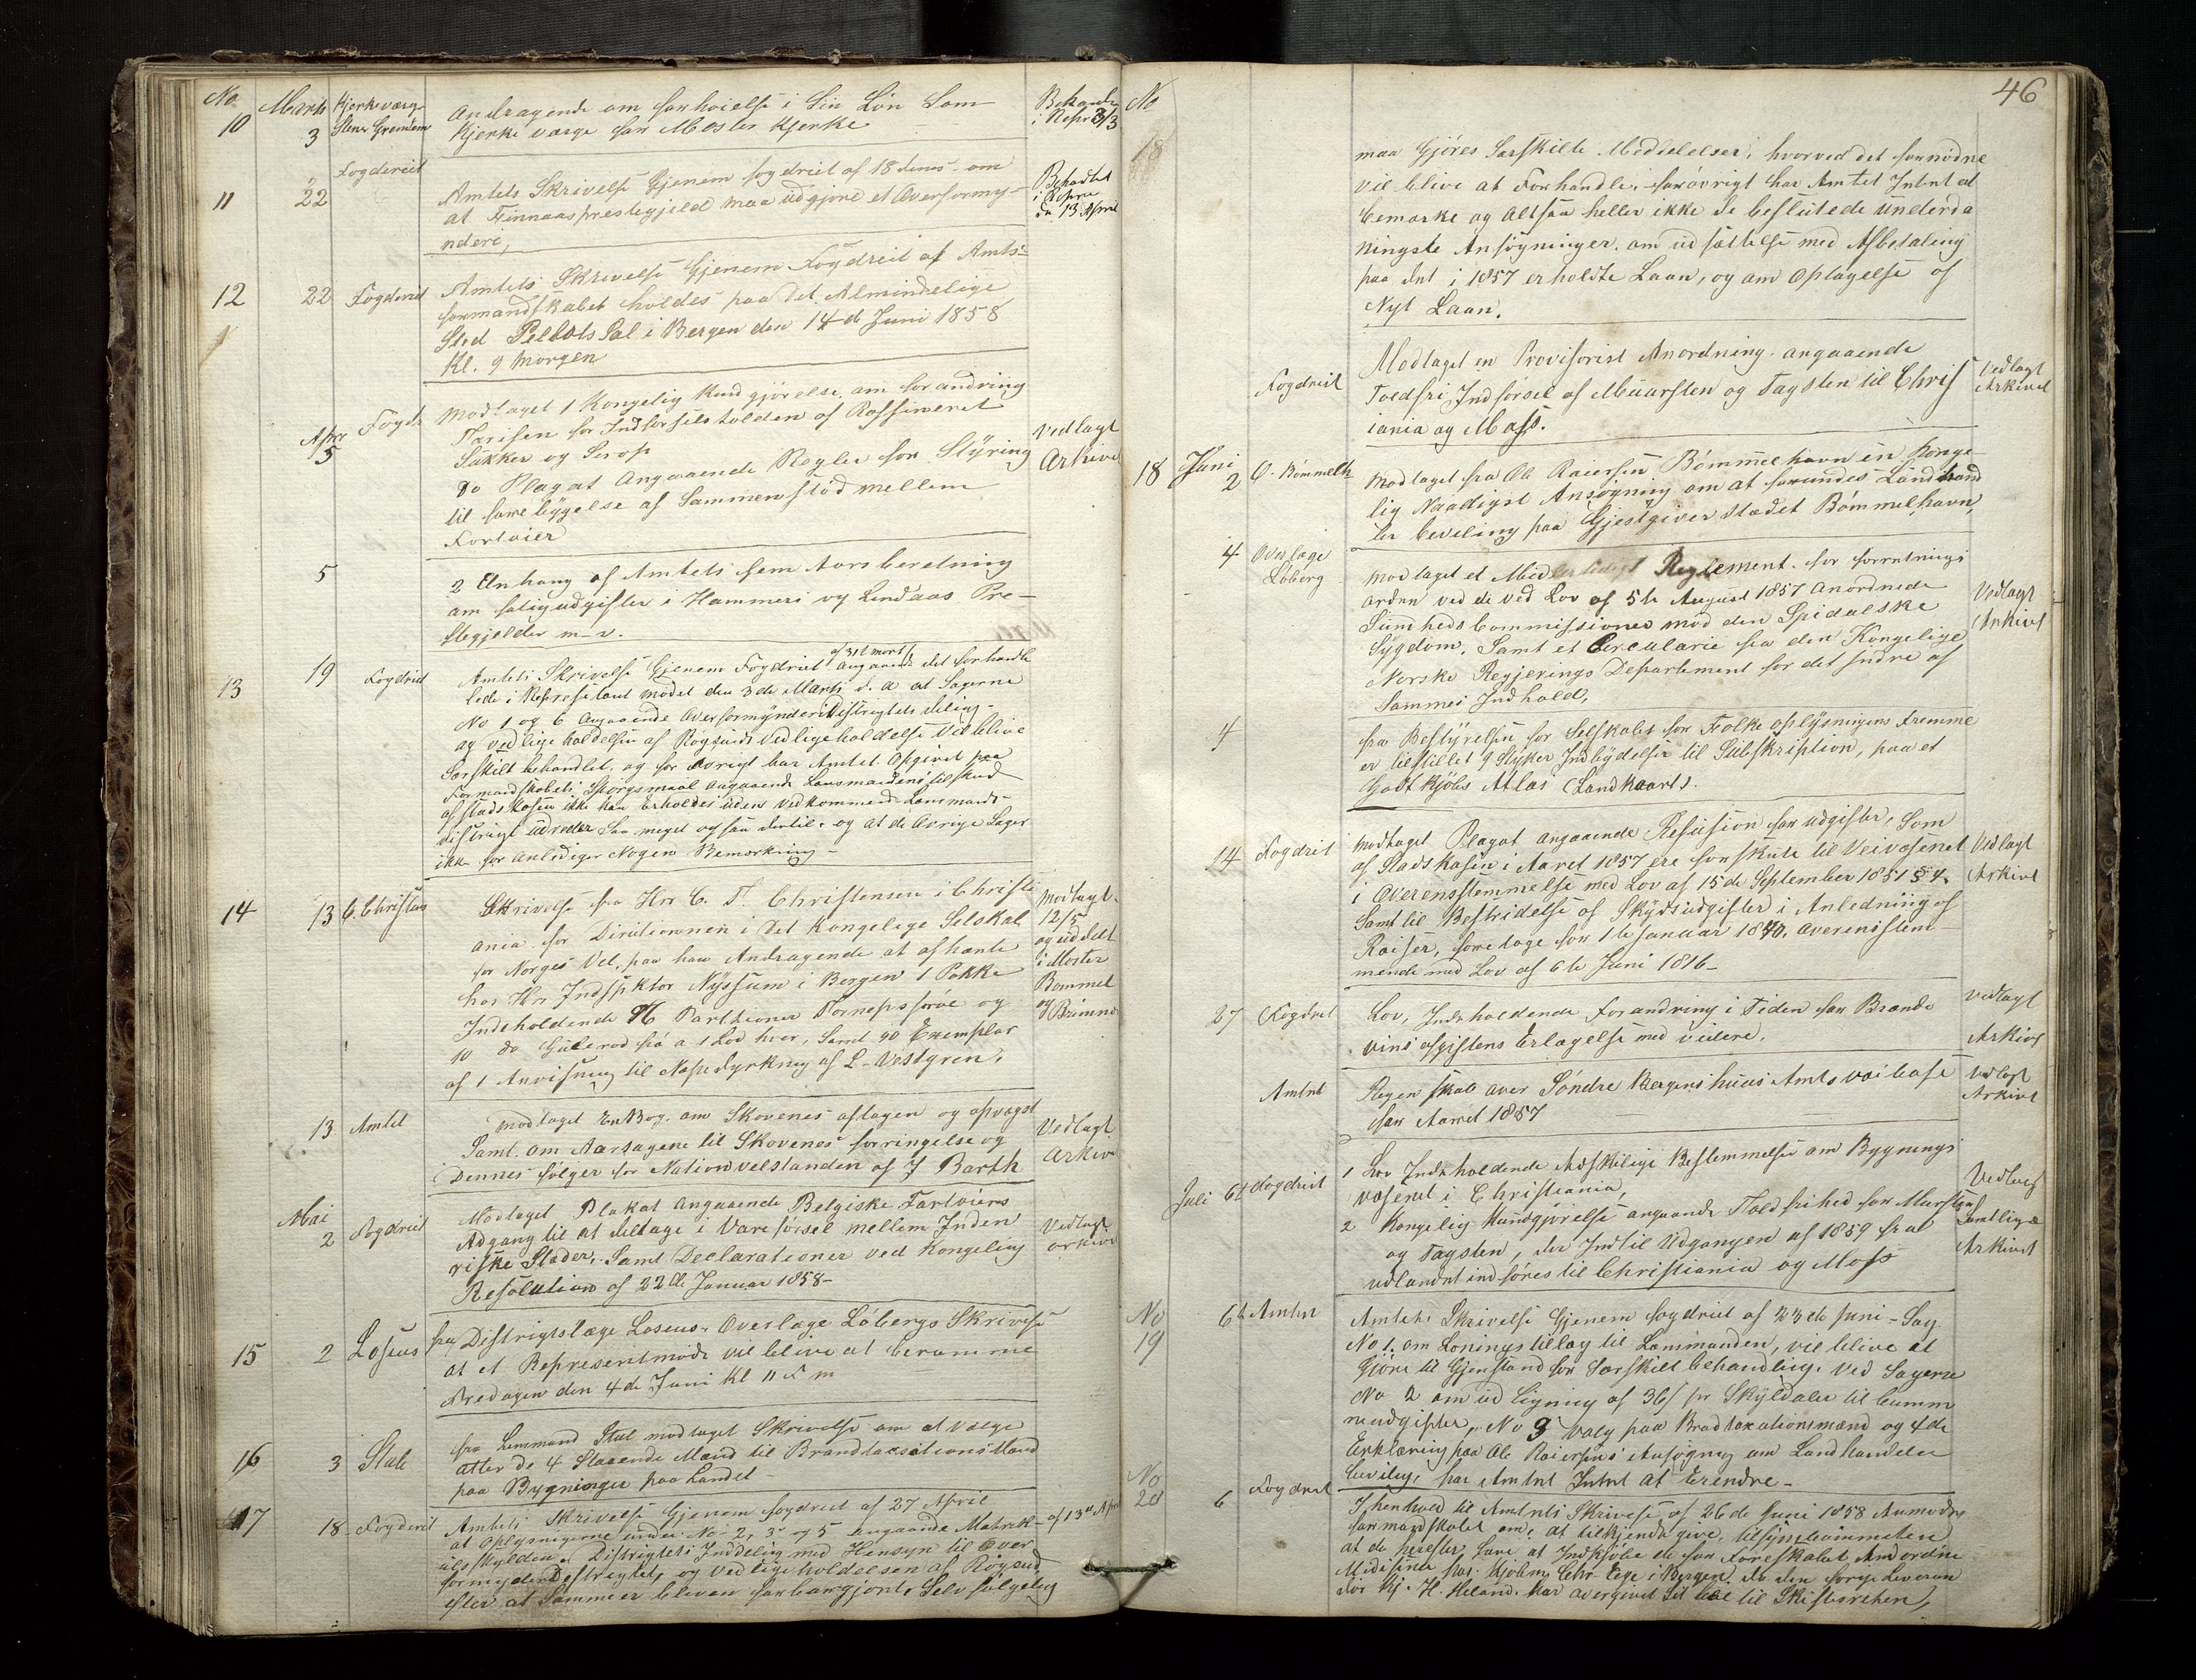 No Marts Kjerkeværge Andragende om forhøielse i Sin Lön Som Behandl
10 3 Stene Kjerke værge for Moster Kjerke i Repr 3/3
Fogderiet
11 22 Amtets Skrivelse Gjenem fogdriet af 18 denes om Behadlet
at Finnaas prestegjeld maa udgjøre et Overformy- i Repre
nderi, d 13 April
12 22 Fogderiet Amtets Skrivelse Gjenem Fogdreit af Amts-
formandskabet holdes paa det Almindelige
Sted Sal i Bergen den 14de Juni 1858
Kl. 9 Morgen
Fogdr Modtaget 1 Kongelig Kundgjörelse om forandring
Apr Tarifen for Indforselstolden af Raffineret Vedlagt
5 Sukker og Serop Arkive
do Plagat Angaaende Regler for Styring
til forebygelse af Sammenstöd mellem
Fortøier
5 2 Anhang af Amtets fem Aars beretning
om fatigudgifter i Hammers og Lindaas Pre-
stegjelder m-v.
af 31t marts
13 19 Fogdriet Amtets Skrivelse Gjenem Fogdriet Angaaende det forhandle
lede i Represetant mödet den 3de Marts d. a at Sagerne
No 1 og 6 Angaaende Overformynderi Distrigtets deling
og vedlige holdelsen af Rögsunds Vedligeholdelse Vil blive
Sarskilt behandlet. og for Övrigt har Amtet Opgivet paa
Formandskabets Sporgsmaal angaaende Lansmandens tilskud
af Stadskasen ikke kan Erholdes uden vedkommende Lansmands
distrigt udreder Saa meget og saa dertil. og at de Övrige Sager
ikke for Anlediger Nogen Bemerkning -
14 13 C. Christens Skrivelse fra Hrr C. T. Christensen i Christi Modtagt
ania for Diretionnen i Det Kongelige Selskab 12/5
for Norges Vel, paa hans Andragende at afhænte og uddelt
hos Hrr Indspktor Nyssum i Bergen 1 Pakke i Moster
Indeholdende 96 Parthioner Törnepsfröe og Bommel
10 do Gulerod frö a 1 Lod hver, Samt 90 Exemplar og Brimnes
af 1 Anvisning til Næpedyrkning af L- Vestgren.
13 Amtet Modtaget En Bog. om Skovenes aftagen og opvægst Vedlagt
Samt. om Aarsagene til Skovenes forringelse og Arkive
Dennes fölger for Nationvelstanden af J Barth
Mai Modtaget Plakat Angaaende Belgiske Fartöiers
2 Fogdriet Adgang til at deltage i Vareförsel mellem Inden Vedlagt
riske Stæder, Samt Declarationer ved Kongelig Arkive
Resolution af 22de Januar 1858-
15 2 Loseus fra Distrigtslæge Loseus. Overlæge Löbergs Skrivese
at et Represeentmöde vil blive at beramme
Fredagen den 4de Juni Kl 11 F m
16 3 Stale fra Lensmand Stal modtaget Skrivelse om at vælge
atter De 4 Staaende Mænd til Brandtacsationsmænd
paa Bygninger paa Landet -
17 18 Fogderit Amtets Skrivelse Gjenem fogdriet af 27 April af 13de April
at Oplysnigerne under No 2, 3 og 5 angaaende Matrik-
ulsskylden. Distrigtets Inddeling med Hensyn til Over
formynder Distrigtet, og vedligeholdelsen af Rögsund
efter at Sammeer bleven forbargjort. Selv fölgelig
46
No
18 maa Gjöres Sarskilte Meddelelser, hvorved det fornödne
vil blive at Forhandle. forövrigt har Amtet Intnt at
bemærke og altsaa heller ikke de beslutede Underda
ningste Ansögninger. om udsættelse med Afbetaling
paa det i 1857 erholdte Laan, og om Optagelse af
Nyt Laan.
Fogdreit Modtaget en Provisorist Anordning. angaaende Vedlagt
Toldfri Indförsel af Muursten og Tagsten til Chris Arkivet
iania og Moss.
18 Juni 2 O. Bömmelh Modtaget fra Ole Raiersen Bömmelhavn en Konge-
lig Naadigst Ansögning om at forundes Landhand
ler beveling paa Gjestgiver Stædet Bömmelhavn,
4 Overlæge Modtaget et Midlertidigt Reglement. for forretnings
Löberg orden ved de ved Lov af 5te August 1857 anordnede Vedlagt
Sunheds Commissioner mod den Spedalske Arkivet
Sygdom. Samt et Circularie fra den Kongelige
Norske Regjerings Departement for det Indre af
Sammes Indhold,
4 fra Bestyrelsen for Selskabet for Folke oplysningens fremme
er tilstillet 9 Styker Indbydelser til Subskription, paa et
Godt kjöbs Atlas (Landkaart).
24 Fogdrit Modtaget Plagat angaaende Refusion for udgifter, Som Vedlagt
af Stadskasen i Aaret 1857 ere forskute til Veivæsenet Arkivet
i Overensstemmelse med Lov af 15de September 1851 § 4.
Samt til Bestridelse af Skydsudgifter i Anledning af
Raiser, foretage for 1te Januar 1840. averenistem-
mende med Lov af 6te Juni 1816-
27 Fogdret Lov, Indeholdende forandring i Tiden for Brænde vedlagt
vins afgiftens Erlagelse med videre. Arkivet
Amtnt Regenskab over Söndre Bergenshuus Amts veikase Vedlagt
for Aaret 1857 Arkivet
Juli 6t Fogdreit 1 Lov Indeholdende Adskilige Bestemmelser om Bygnings Vedlagt
væsenet i Christiania, Samtlige
2 Kongelig Kundgjörelse angaaende Toldfrihed for Mursten Arkivet
og Tagsten, der Indtil Udgangen af 1859 fra
udlandet indföres til Christiania og Moss
No 19 6t Amtet Amtets Skrivelse Gjenem fogdriet af 23de Juni - Sag
No 1. om Lonings tillæg til Lansmanden, vil blive at
Gjöre til Gjenstand for Sarskilt behandling. Ved Sagerne
No 2 om ud Ligning af 36s pr Skyldaler til Comm
neudgifter, No 3 valg paa Brandtaxationsmænd og 4de
Erklæring paa Ole Raiersens Ansögning om Landhandler
beviling. har Amtnt Intnt at Erendre-
No 20 6 Fogdret I henhold til Amtets Skrivese af 26de Juni 1858 Anmodes
formandskabet om, at tilkjende give, tilsynskommiteen
at de herefter have at Indkjöbe de for
hos Kjöbm. Chr. Ege i Bergen. da den forrige Leveran
dör Hj. H. Heland. har overgivet Sit til Skifteretten,